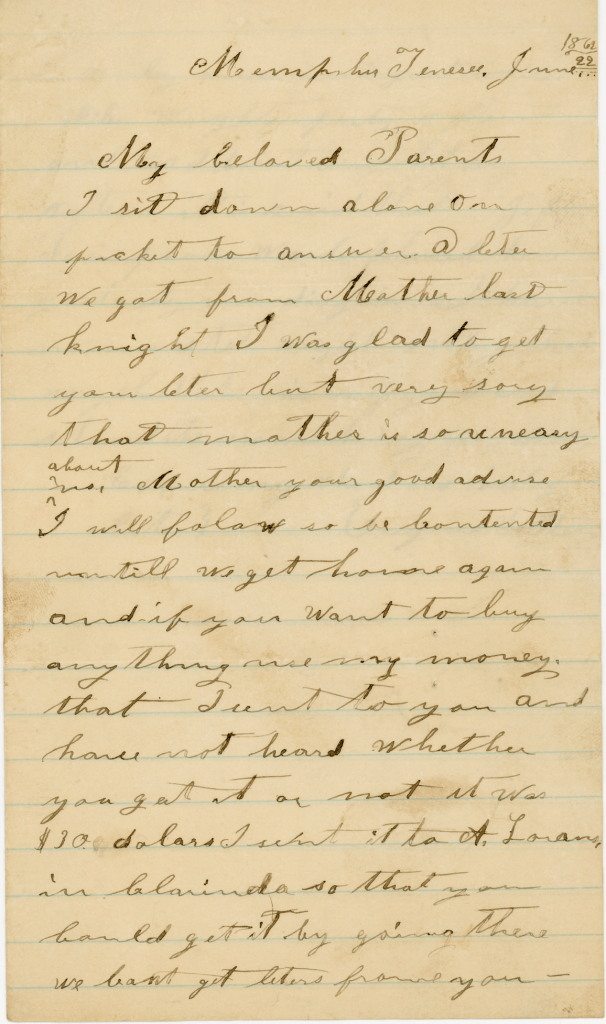 Memphis Tenesee, June 1862
22
My beloved Parents
I sit down alone on
picket to answer a leter
we got from Mother last
knight I was glad to get
your leter but very sory
that mother is so uneasy
about
us, Mother your good advise
I will folaw so be contented
untill we get home again
and if you want to buy
any thing use my money
that I sent to you and
have not heard whether
you get it or not it was
$30 dolars I sent it to A. Lorans
in Clarinda so that you
could get it by going there
we cant get leters from you —